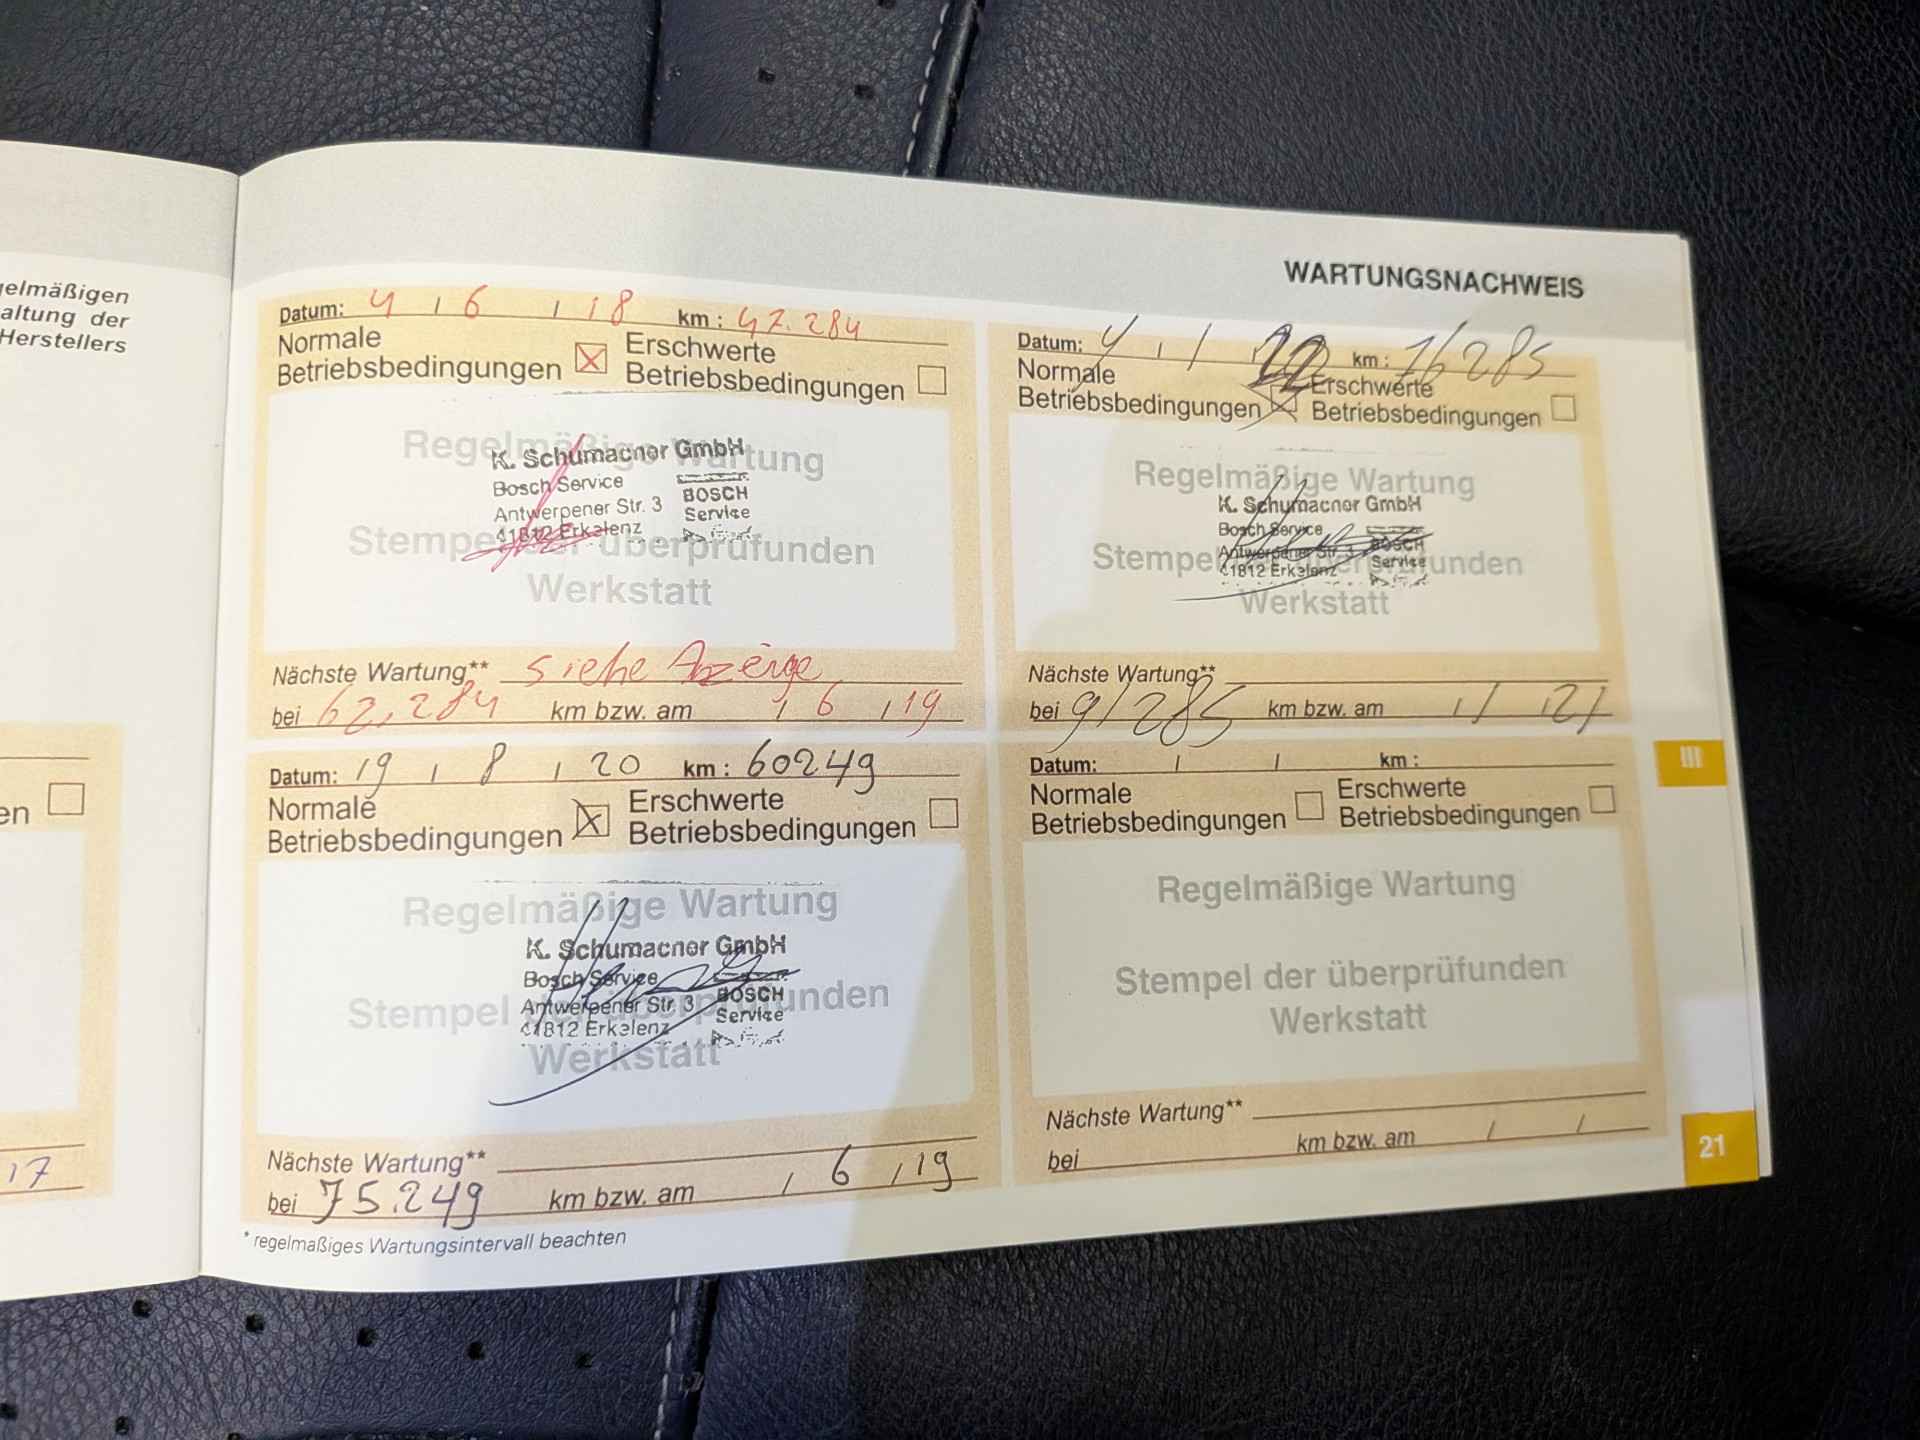 gelmäßigen
altung der
Herstellers
en
17
WARTUNGSNACHWEIS
Datum: 4 / 6 / 18 km : 47.284
Normale
Betriebsbedingungen
Erschwerte
Betriebsbedingungen
Regelmäßige Wartung
Stempel der überprüfunden
Werkstatt
K. Schumacher GmbH
Bosch Service
Antwerpener Str. 3
41812 Erkelenz
BOSCH
Service
Nächste Wartung** siehe Anzeige
bei 62.284 km bzw. am / 6 / 19
Datum: 19 / 8 / 20 km : 60249
Normale
Betriebsbedingungen
Erschwerte
Betriebsbedingungen
Regelmäßige Wartung
Stempel der überprüfunden
Werkstatt
K. Schumacher GmbH
Bosch Service
Antwerpener Str. 3
41812 Erkelenz
BOSCH
Service
Nächste Wartung**
bei 75.249 km bzw. am / 6 / 19
* regelmäßiges Wartungsintervall beachten
Datum: / / 22 km :
Normale
Betriebsbedingungen
Erschwerte
Betriebsbedingungen
Regelmäßige Wartung
Stempel der überprüfunden
Werkstatt
K. Schumacher GmbH
Bosch Service
Antwerpener Str. 3
41812 Erkelenz
BOSCH
Service
Nächste Wartung**
bei 91285 km bzw. am / /
Datum: / / km :
Normale
Betriebsbedingungen
Erschwerte
Betriebsbedingungen
Regelmäßige Wartung
Stempel der überprüfunden
Werkstatt
Nächste Wartung**
bei km bzw. am / /
III
21